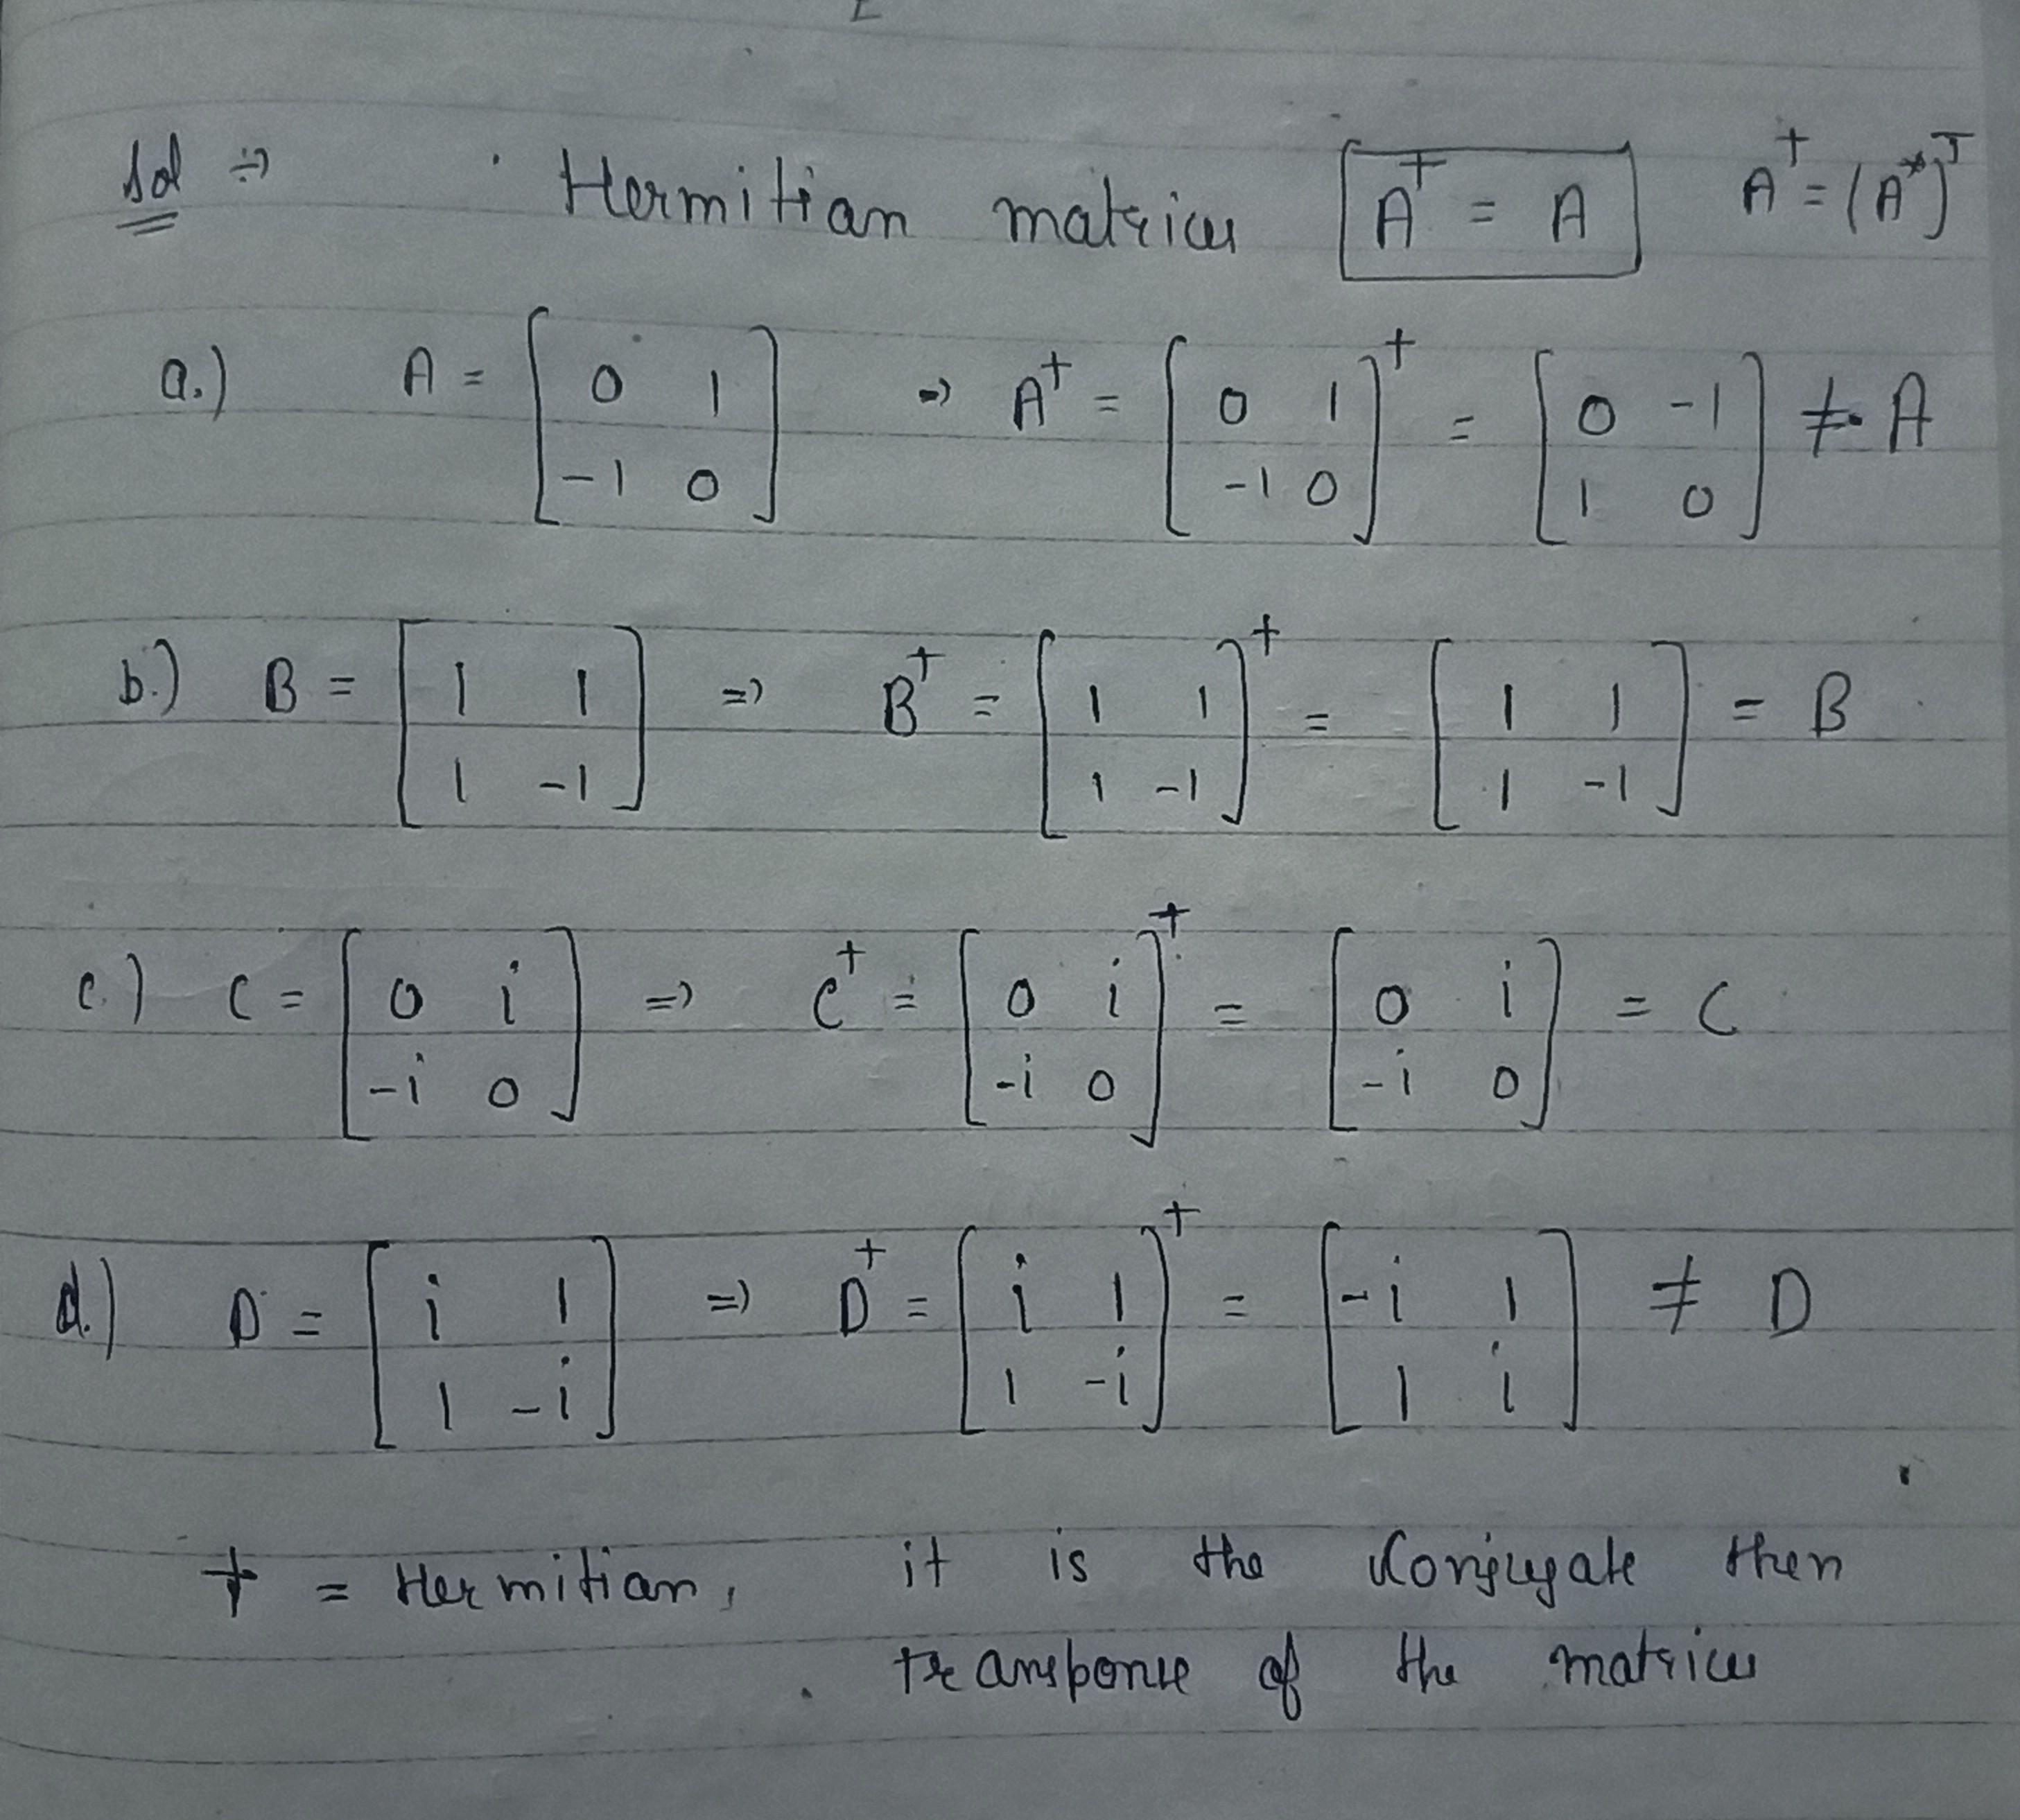 Sol ⇒ · Hermitian matrices [A† = A] A† = (A*)ᵀ
a.) A = [0 1; -1 0] ⇒ A† = [0 1; -1 0]† = [0 -1; 1 0] ≠ A
b.) B = [1 1; 1 -1] ⇒ B† = [1 1; 1 -1]† = [1 1; 1 -1] = B
c.) C = [0 i; -i 0] ⇒ C† = [0 i; -i 0]† = [0 i; -i 0] = C
d.) D = [i 1; 1 -i] ⇒ D† = [i 1; 1 -i]† = [-i 1; 1 i] ≠ D
† = Hermitian, it is the Conjugate then
transponse of the matrices